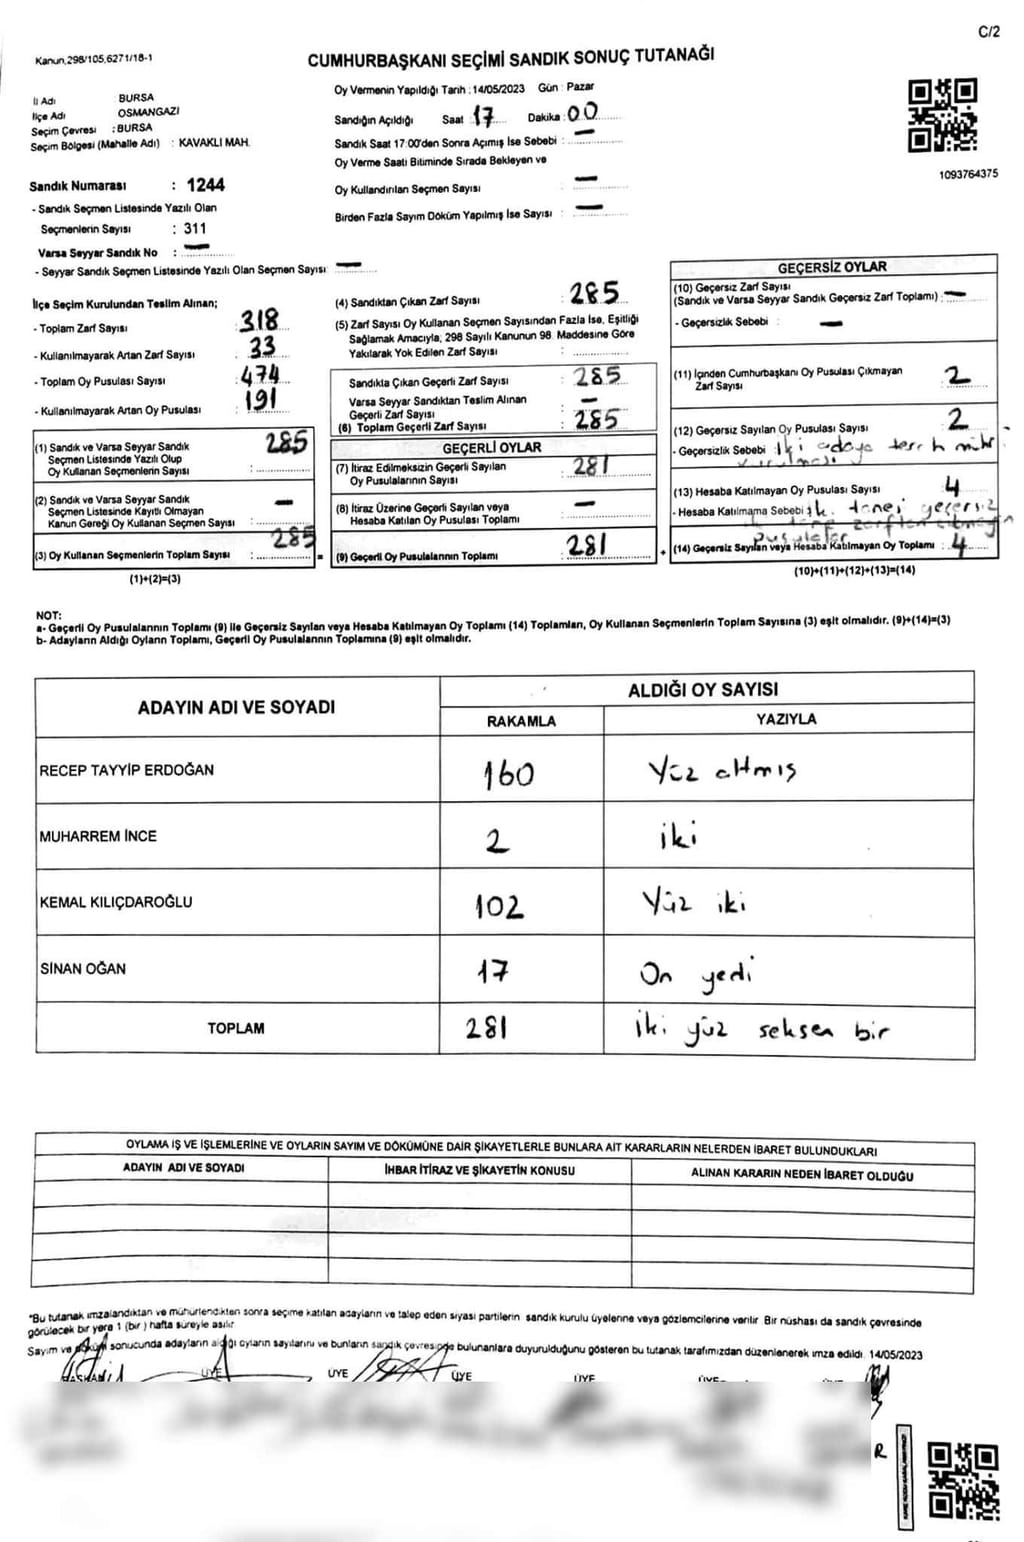 C/2
Kanun,298/105,6271/18-1
CUMHURBAŞKANI SEÇİMİ SANDIK SONUÇ TUTANAĞI
İl Adı BURSA
İlçe Adı OSMANGAZİ
Seçim Çevresi : BURSA
Seçim Bölgesi (Mahalle Adı) : KAVAKLI MAH.
Sandık Numarası : 1244
- Sandık Seçmen Listesinde Yazılı Olan
Seçmenlerin Sayısı : 311
Varsa Seyyar Sandık No : —
- Seyyar Sandık Seçmen Listesinde Yazılı Olan Seçmen Sayısı: —
Oy Vermenin Yapıldığı Tarih : 14/05/2023 Gün : Pazar
Sandığın Açıldığı Saat 17 Dakika : 00
Sandık Saat 17:00'den Sonra Açımış İse Sebebi : —
Oy Verme Saati Bitiminde Sırada Bekleyen ve
Oy Kullandırılan Seçmen Sayısı : —
Birden Fazla Sayım Döküm Yapılmış İse Sayısı : —
1093764375
İlçe Seçim Kurulundan Teslim Alınan;
- Toplam Zarf Sayısı : 318
- Kullanılmayarak Artan Zarf Sayısı : 33
- Toplam Oy Pusulası Sayısı : 474
- Kullanılmayarak Artan Oy Pusulası : 191
(1) Sandık ve Varsa Seyyar Sandık
Seçmen Listesinde Yazılı Olup
Oy Kullanan Seçmenlerin Sayısı : 285
(2) Sandık ve Varsa Seyyar Sandık
Seçmen Listesinde Kayıtlı Olmayan
Kanun Gereği Oy Kullanan Seçmen Sayısı : —
(3) Oy Kullanan Seçmenlerin Toplam Sayısı : 285 =
(1)+(2)=(3)
(4) Sandıktan Çıkan Zarf Sayısı : 285
(5) Zarf Sayısı Oy Kullanan Seçmen Sayısından Fazla İse, Eşitliği
Sağlamak Amacıyla; 298 Sayılı Kanunun 98. Maddesine Göre
Yakılarak Yok Edilen Zarf Sayısı :
Sandıkta Çıkan Geçerli Zarf Sayısı : 285
Varsa Seyyar Sandıktan Teslim Alınan
Geçerli Zarf Sayısı : —
(6) Toplam Geçerli Zarf Sayısı : 285
GEÇERLİ OYLAR
(7) İtiraz Edilmeksizin Geçerli Sayılan
Oy Pusulalarının Sayısı : 281
(8) İtiraz Üzerine Geçerli Sayılan veya
Hesaba Katılan Oy Pusulası Toplamı : —
(9) Geçerli Oy Pusulalarının Toplamı : 281 +
GEÇERSİZ OYLAR
(10) Geçersiz Zarf Sayısı
(Sandık ve Varsa Seyyar Sandık Geçersiz Zarf Toplamı) : —
- Geçersizlik Sebebi : —
(11) İçinden Cumhurbaşkanı Oy Pusulası Çıkmayan
Zarf Sayısı 2
(12) Geçersiz Sayılan Oy Pusulası Sayısı 2
- Geçersizlik Sebebi : iki adaya
(13) Hesaba Katılmayan Oy Pusulası Sayısı 4
- Hesaba Katılmama Sebebi : geçersiz
(14) Geçersiz Sayılan veya Hesaba Katılmayan Oy Toplamı : 4
(10)+(11)+(12)+(13)=(14)
NOT:
a- Geçerli Oy Pusulalarının Toplamı (9) ile Geçersiz Sayılan veya Hesaba Katılmayan Oy Toplamı (14) Toplamları, Oy Kullanan Seçmenlerin Toplam Sayısına (3) eşit olmalıdır. (9)+(14)=(3)
b- Adayların Aldığı Oyların Toplamı, Geçerli Oy Pusulalarının Toplamına (9) eşit olmalıdır.
ADAYIN ADI VE SOYADI ALDIĞI OY SAYISI
RAKAMLA YAZIYLA
RECEP TAYYİP ERDOĞAN 160 Yüz altmış
MUHARREM İNCE 2 iki
KEMAL KILIÇDAROĞLU 102 Yüz iki
SİNAN OĞAN 17 On yedi
TOPLAM 281 iki yüz seksen bir
OYLAMA İŞ VE İŞLEMLERİNE VE OYLARIN SAYIM VE DÖKÜMÜNE DAİR ŞİKAYETLERLE BUNLARA AİT KARARLARIN NELERDEN İBARET BULUNDUKLARI
ADAYIN ADI VE SOYADI İHBAR İTİRAZ VE ŞİKAYETİN KONUSU ALINAN KARARIN NEDEN İBARET OLDUĞU
*Bu tutanak imzalandıktan ve mühürlendikten sonra seçime katılan adayların ve talep eden siyasi partilerin sandık kurulu üyelerine veya gözlemcilerine verilir. Bir nüshası da sandık çevresinde
görülecek bir yere 1 (bir) hafta süreyle asılır.
Sayım ve döküm sonucunda adayların aldığı oyların sayılarını ve bunların sandık çevresinde bulunanlara duyurulduğunu gösteren bu tutanak tarafımızdan düzenlenerek imza edildi. 14/05/2023
BAŞKAN ÜYE ÜYE ÜYE ÜYE ÜYE